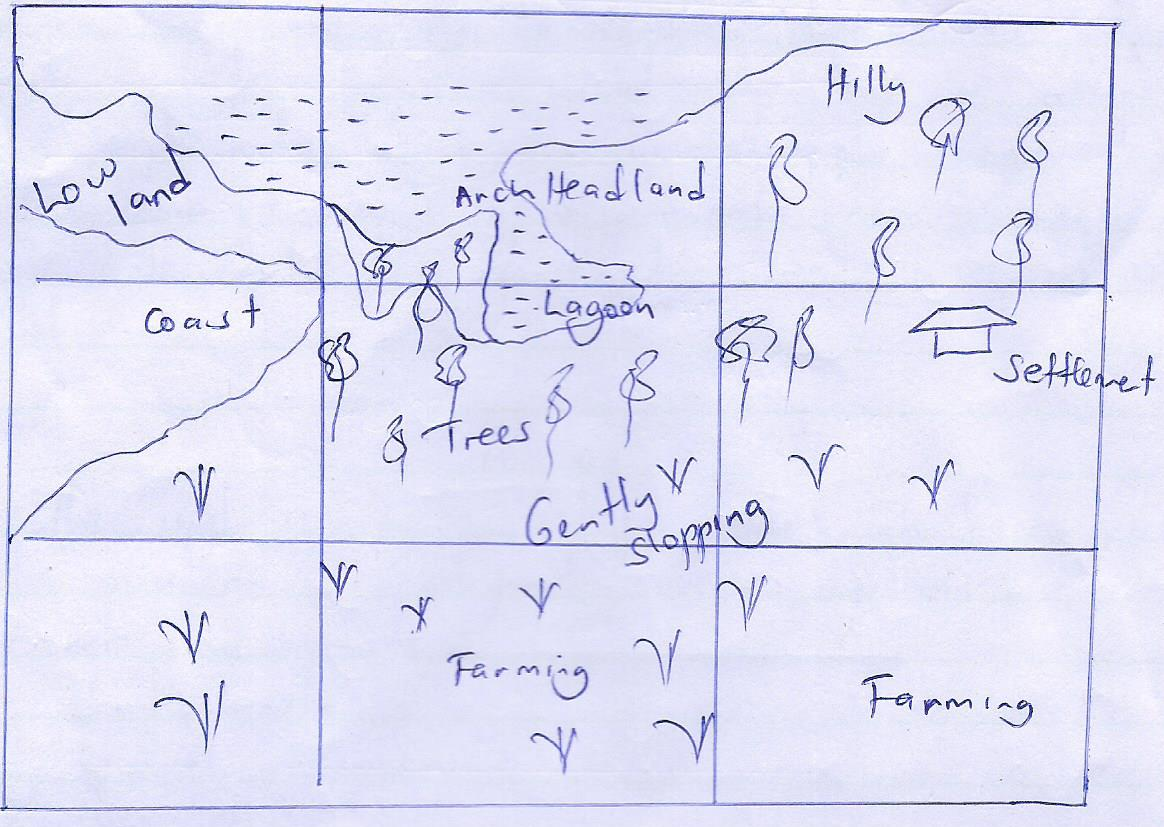 Hilly
Low
land
Arch Headland
Lagoon
Coast
Settlemet
Trees
Gently
Slopping
Farming
Farming